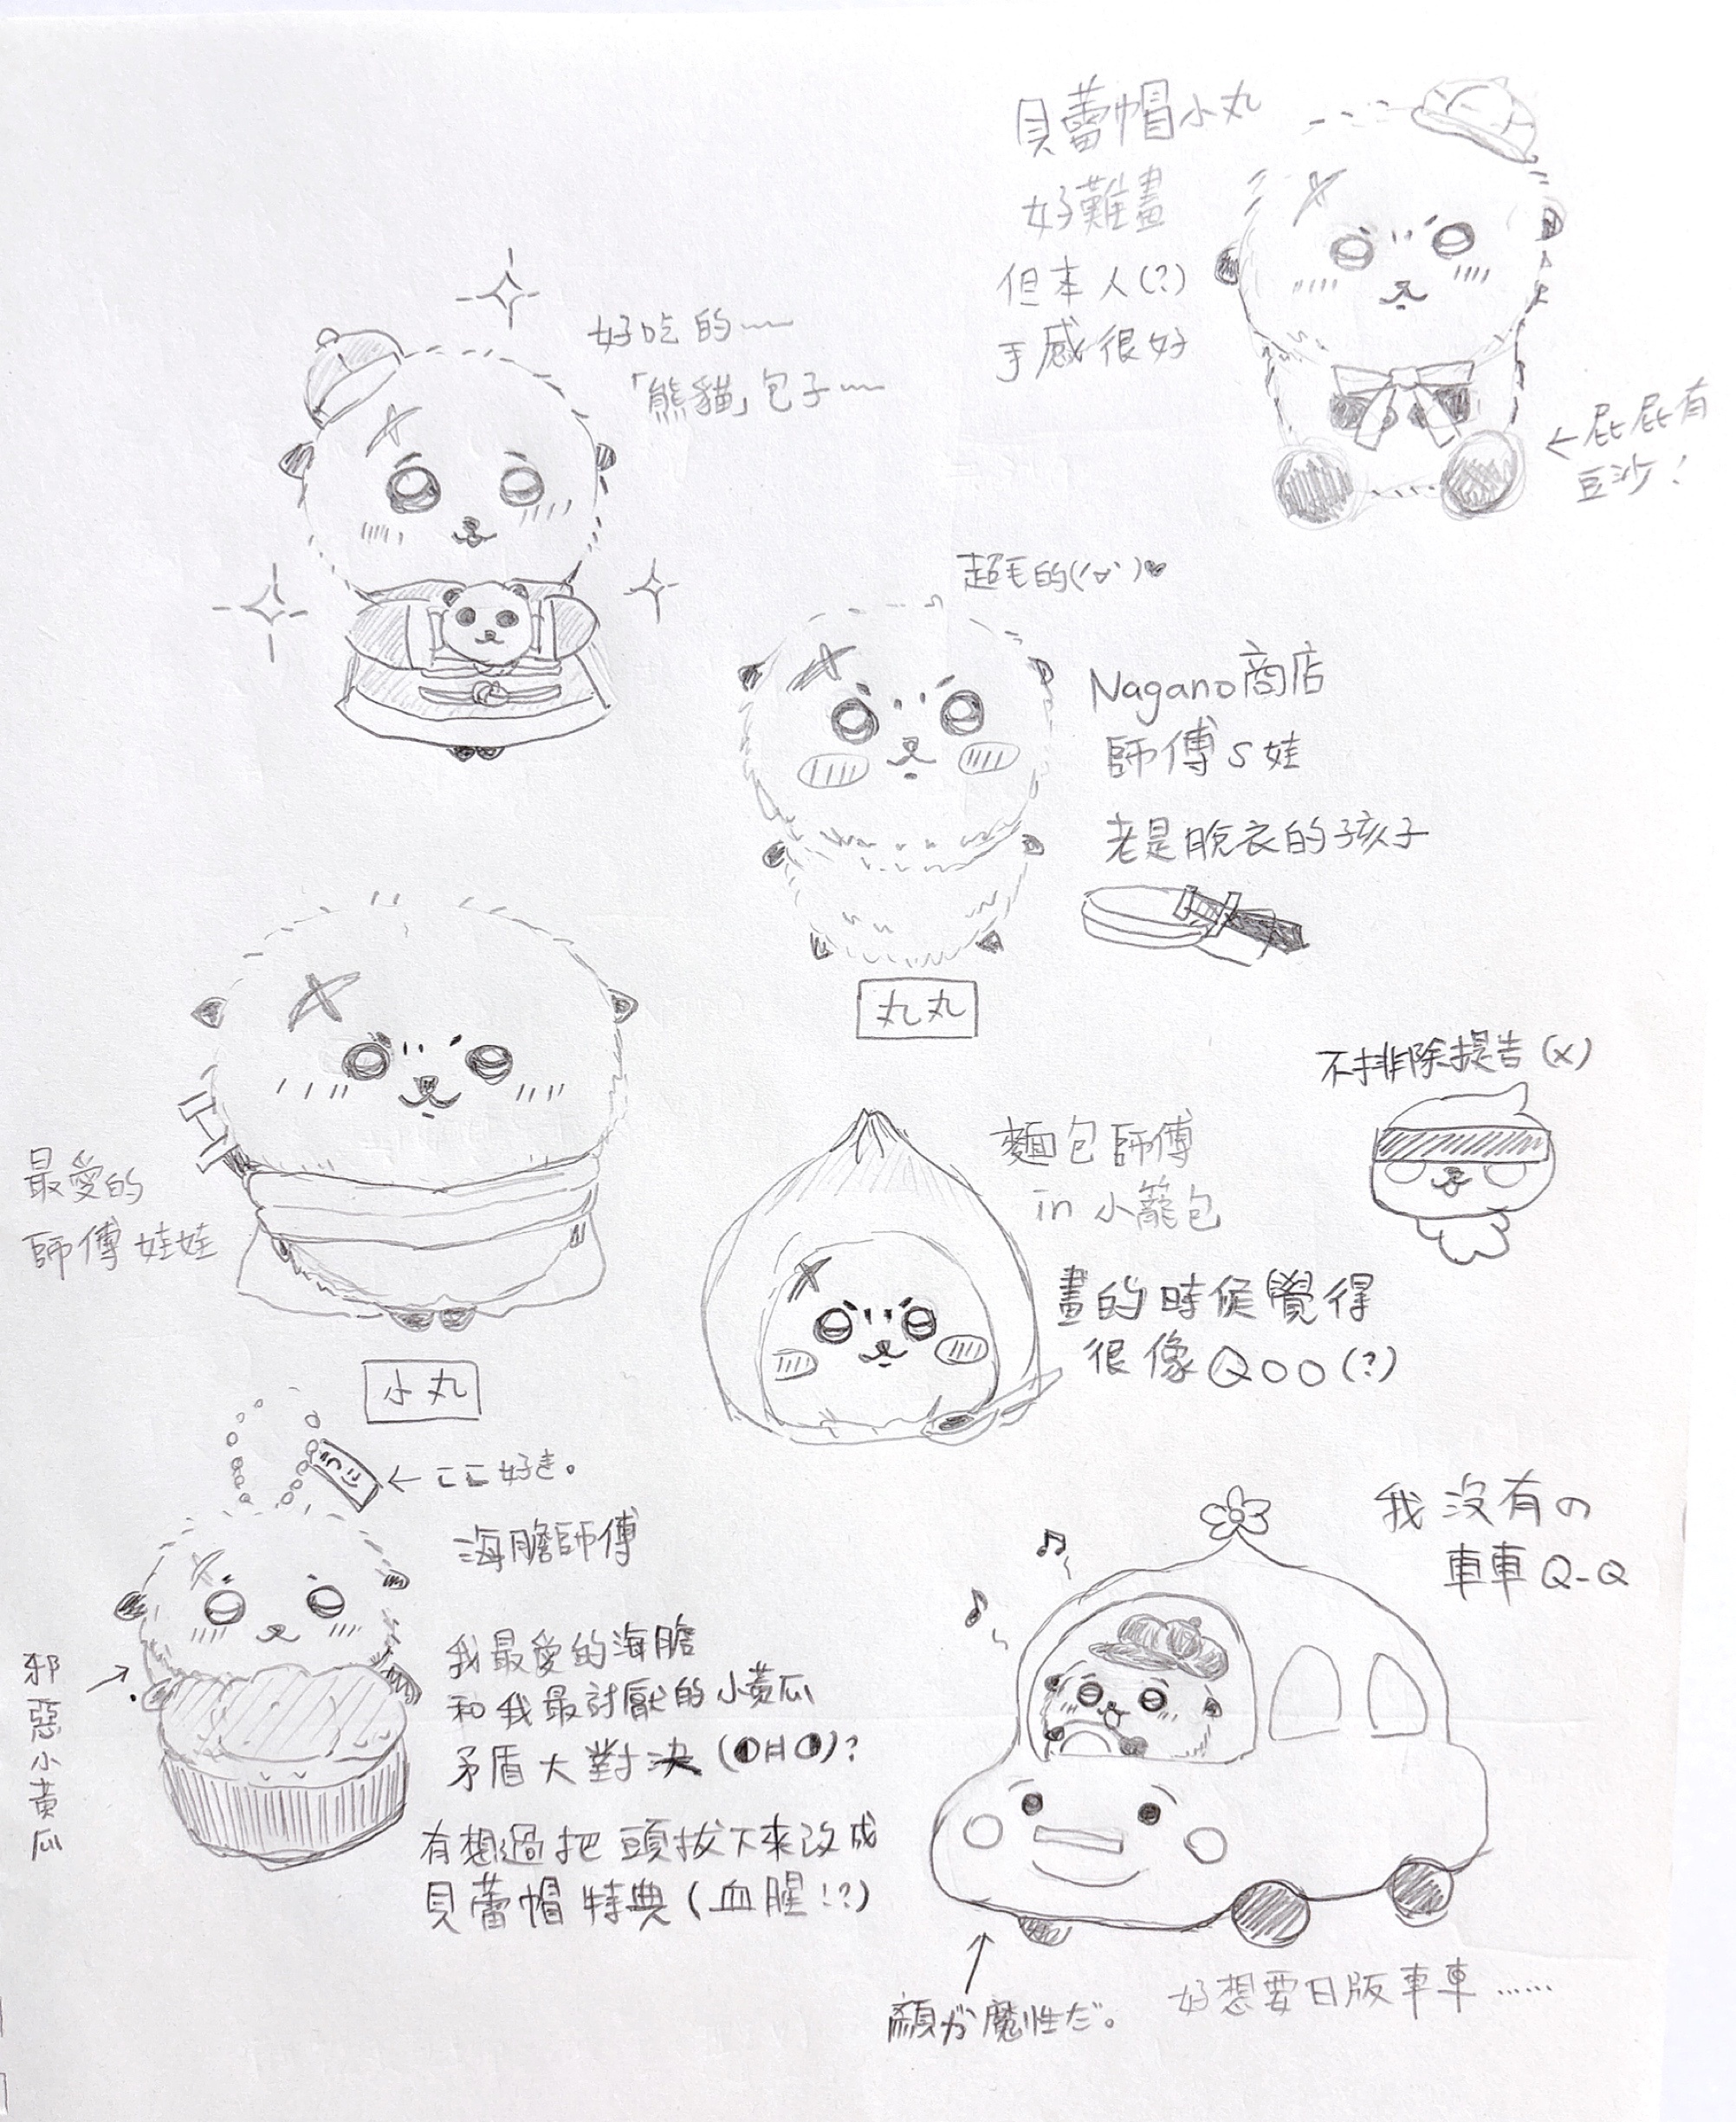 貝蕾帽小丸
好難畫
但本人(?)
手感很好
←屁屁有
豆沙!
好吃的~~
「熊貓」包子~~
超毛的(´∀`)♥
Nagano商店
師傅S娃
老是脫衣的孩子
丸丸
最愛的
師傅娃娃
小丸
不排除提告(x)
麵包師傅
in 小籠包
畫的時候覺得
很像Qoo(?)
←ここ好き。
海膽師傅
邪惡小黃瓜
我最愛的海膽
和我最討厭的小黃瓜
矛盾大對決(◐日◑)?
有想過把頭拔下來改成
貝蕾帽特典(血腥!?)
我沒有の
車車Q-Q
顏が魔性だ。
好想要日版車車……